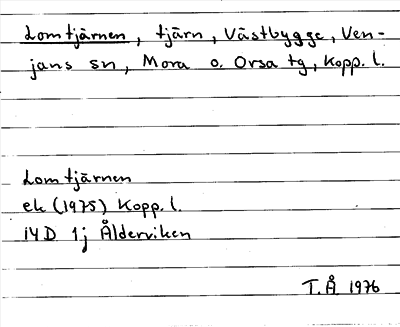 Lomtjärnen, tjärn, Västbygge, Ven-
jans sn, Mora o. Orsa tg, Kopp. l.
Lomtjärnen
ek (1975) Kopp. l.
14D 1j Ålderviken
T.Å 1976